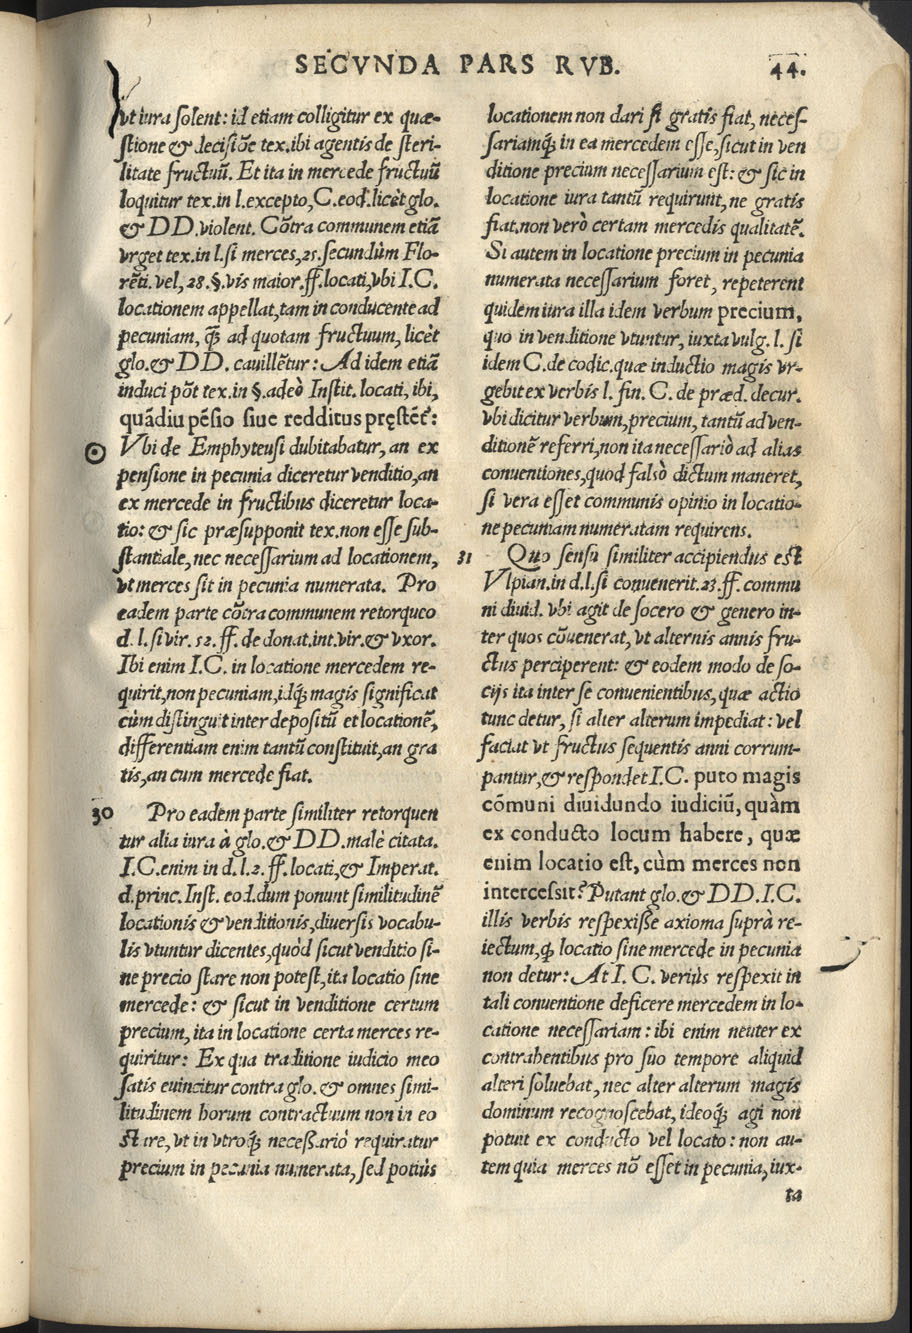 SECVNDA PARS RVB.
44.
vt iura solent: id etiam colligitur ex quæ-
stione & decisiõe tex. ibi agentis de steri-
litate fructuũ. Et ita in mercede fructuũ
loquitur tex. in l. excepto, C. eod. licèt glo.
& DD. violent. Cõtra communem etiã
vrget tex. in l. si merces, 25. secundùm Flo-
rẽti. vel, 28. §. vis maior. ff. locati, vbi I.C.
locationem appellat, tam in conducente ad
pecuniam, quã ad quotam fructuum, licèt
glo. & DD. cauillẽtur: Ad idem etiã
induci põt tex. in §. adeò Instit. locati, ibi,
quãdiu pẽsio siue redditus pręstẽt᷑:
Vbi de Emphyteusi dubitabatur, an ex
pensione in pecunia diceretur venditio, an
ex mercede in fructibus diceretur loca-
tio: & sic præsupponit tex. non esse sub-
stantiale, nec necessarium ad locationem,
vt merces sit in pecunia numerata. Pro
eadem parte cõtra communem retorqueo
d. l. si vir. 52. ff. de donat. int. vir. & vxor.
Ibi enim I.C. in locatione mercedem re-
quirit, non pecuniam, idq́; magis significat
cùm distinguit inter depositũ et locationẽ,
differentiam enim tantũ constituit, an gra
tis, an cum mercede fiat.
30 Pro eadem parte similiter retorquen
tur alia iura à glo. & DD. malè citata.
I.C. enim in d. l. 2. ff. locati, & Imperat.
d. princ. Inst. eod. dum ponunt similitudinẽ
locationis & venditionis, diuersis vocabu-
lis vtuntur dicentes, quòd sicut venditio si-
ne precio stare non potest, ita locatio sine
mercede: & sicut in venditione certum
precium, ita in locatione certa merces re-
quiritur: Ex qua traditione iudicio meo
satis euincitur contra glo. & omnes simi-
litudinem horum contractuum non in eo
stare, vt in vtroq́; necessariò requiratur
precium in pecunia numerata, sed potiùs
locationem non dari si gratis fiat, neces-
sariamq́; in ea mercedem esse, sicut in ven
ditione precium necessarium est: & sic in
locatione iura tantũ requirunt, ne gratis
fiat, non verò certam mercedis qualitatẽ.
Si autem in locatione precium in pecunia
numerata necessarium foret, repeterent
quidem iura illa idem verbum precium,
quo in venditione vtuntur, iuxta vulg. l. si
idem C. de codic. quæ inductio magis vr-
gebit ex verbis l. fin. C. de præd. decur.
vbi dicitur verbum, precium, tantũ ad ven-
ditionẽ referri, non ita necessariò ad alias
conuentiones, quod falsò dictum maneret,
si vera esset communis opinio in locatio-
ne pecuniam numeratam requirens.
31 Quo sensu similiter accipiendus est
Vlpian. in d. l. si conuenerit. 23. ff. commu
ni diuid. vbi agit de socero & genero in-
ter quos cõuenerat, vt alternis annis fru-
ctus perciperent: & eodem modo de so-
cijs ita inter se conuenientibus, quæ actio
tunc detur, si alter alterum impediat: vel
faciat vt fructus sequentis anni corrum-
pantur, & respondet I.C. puto magis
cõmuni diuidundo iudiciũ, quàm
ex conducto locum habere, quæ
enim locatio est, cùm merces non
intercessit? Putant glo. & DD. I.C.
illis verbis respexisse axioma suprà re-
iectum, ꝙ locatio sine mercede in pecunia
non detur: At I.C. veriùs respexit in
tali conuentione deficere mercedem in lo-
catione necessariam: ibi enim neuter ex
contrahentibus pro suo tempore aliquid
alteri soluebat, nec alter alterum magis
dominum recognoscebat, ideoq́; agi non
potuit ex conducto vel locato: non au-
tem quia merces nõ esset in pecunia, iux-
ta